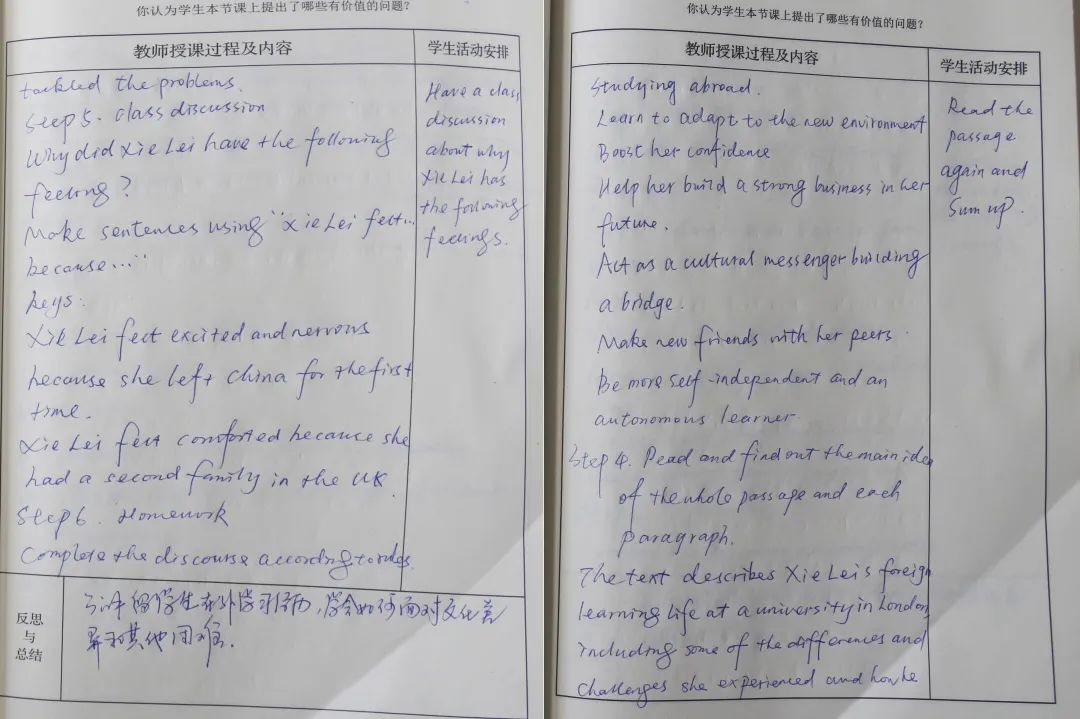 你认为学生本节课上提出了哪些有价值的问题？
教师授课过程及内容
学生活动安排
tackled the problems.
Step 5. Class discussion
Why did Xie Lei have the following
feeling?
Make sentences using "Xie Lei felt...
because..."
keys:
Xie Lei felt excited and nervous
because she left China for the first
time.
Xie Lei felt comforted because she
had a second family in the UK.
Step 6. Homework
Complete the discourse according to rules.
Have a class
discussion
about why
Xie Lei has
the following
feelings.
反思
与
总结
留学生在外学习经历，学会如何面对文化差
异和其他困难.
你认为学生本节课上提出了哪些有价值的问题？
教师授课过程及内容
学生活动安排
Studying abroad.
Learn to adapt to the new environment
Boost her confidence
Help her build a strong business in her
future.
Act as a cultural messenger building
a bridge.
Make new friends with her peers.
Be more self-independent and an
autonomous learner.
Step 4. Read and find out the main idea
of the whole passage and each
paragraph.
The text describes Xie Lei's foreign
learning life at a university in London,
including some of the differences and
challenges she experienced and how he
Read the
passage
again and
Sum up.